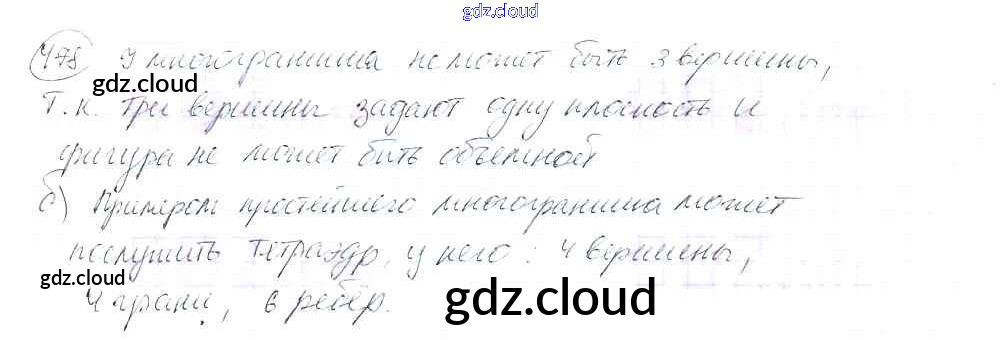 gdz.cloud
478 У многогранника не может быть 3 вершины,
gdz.cloud
т.к. три вершины задают одну плоскость и
фигура не может быть объемной
б) Примером простейшего многогранника может
послужить тетраэдр, у него: 4 вершены,
gdz.cloud
4 грани, 6 ребёр.
gdz.cloud